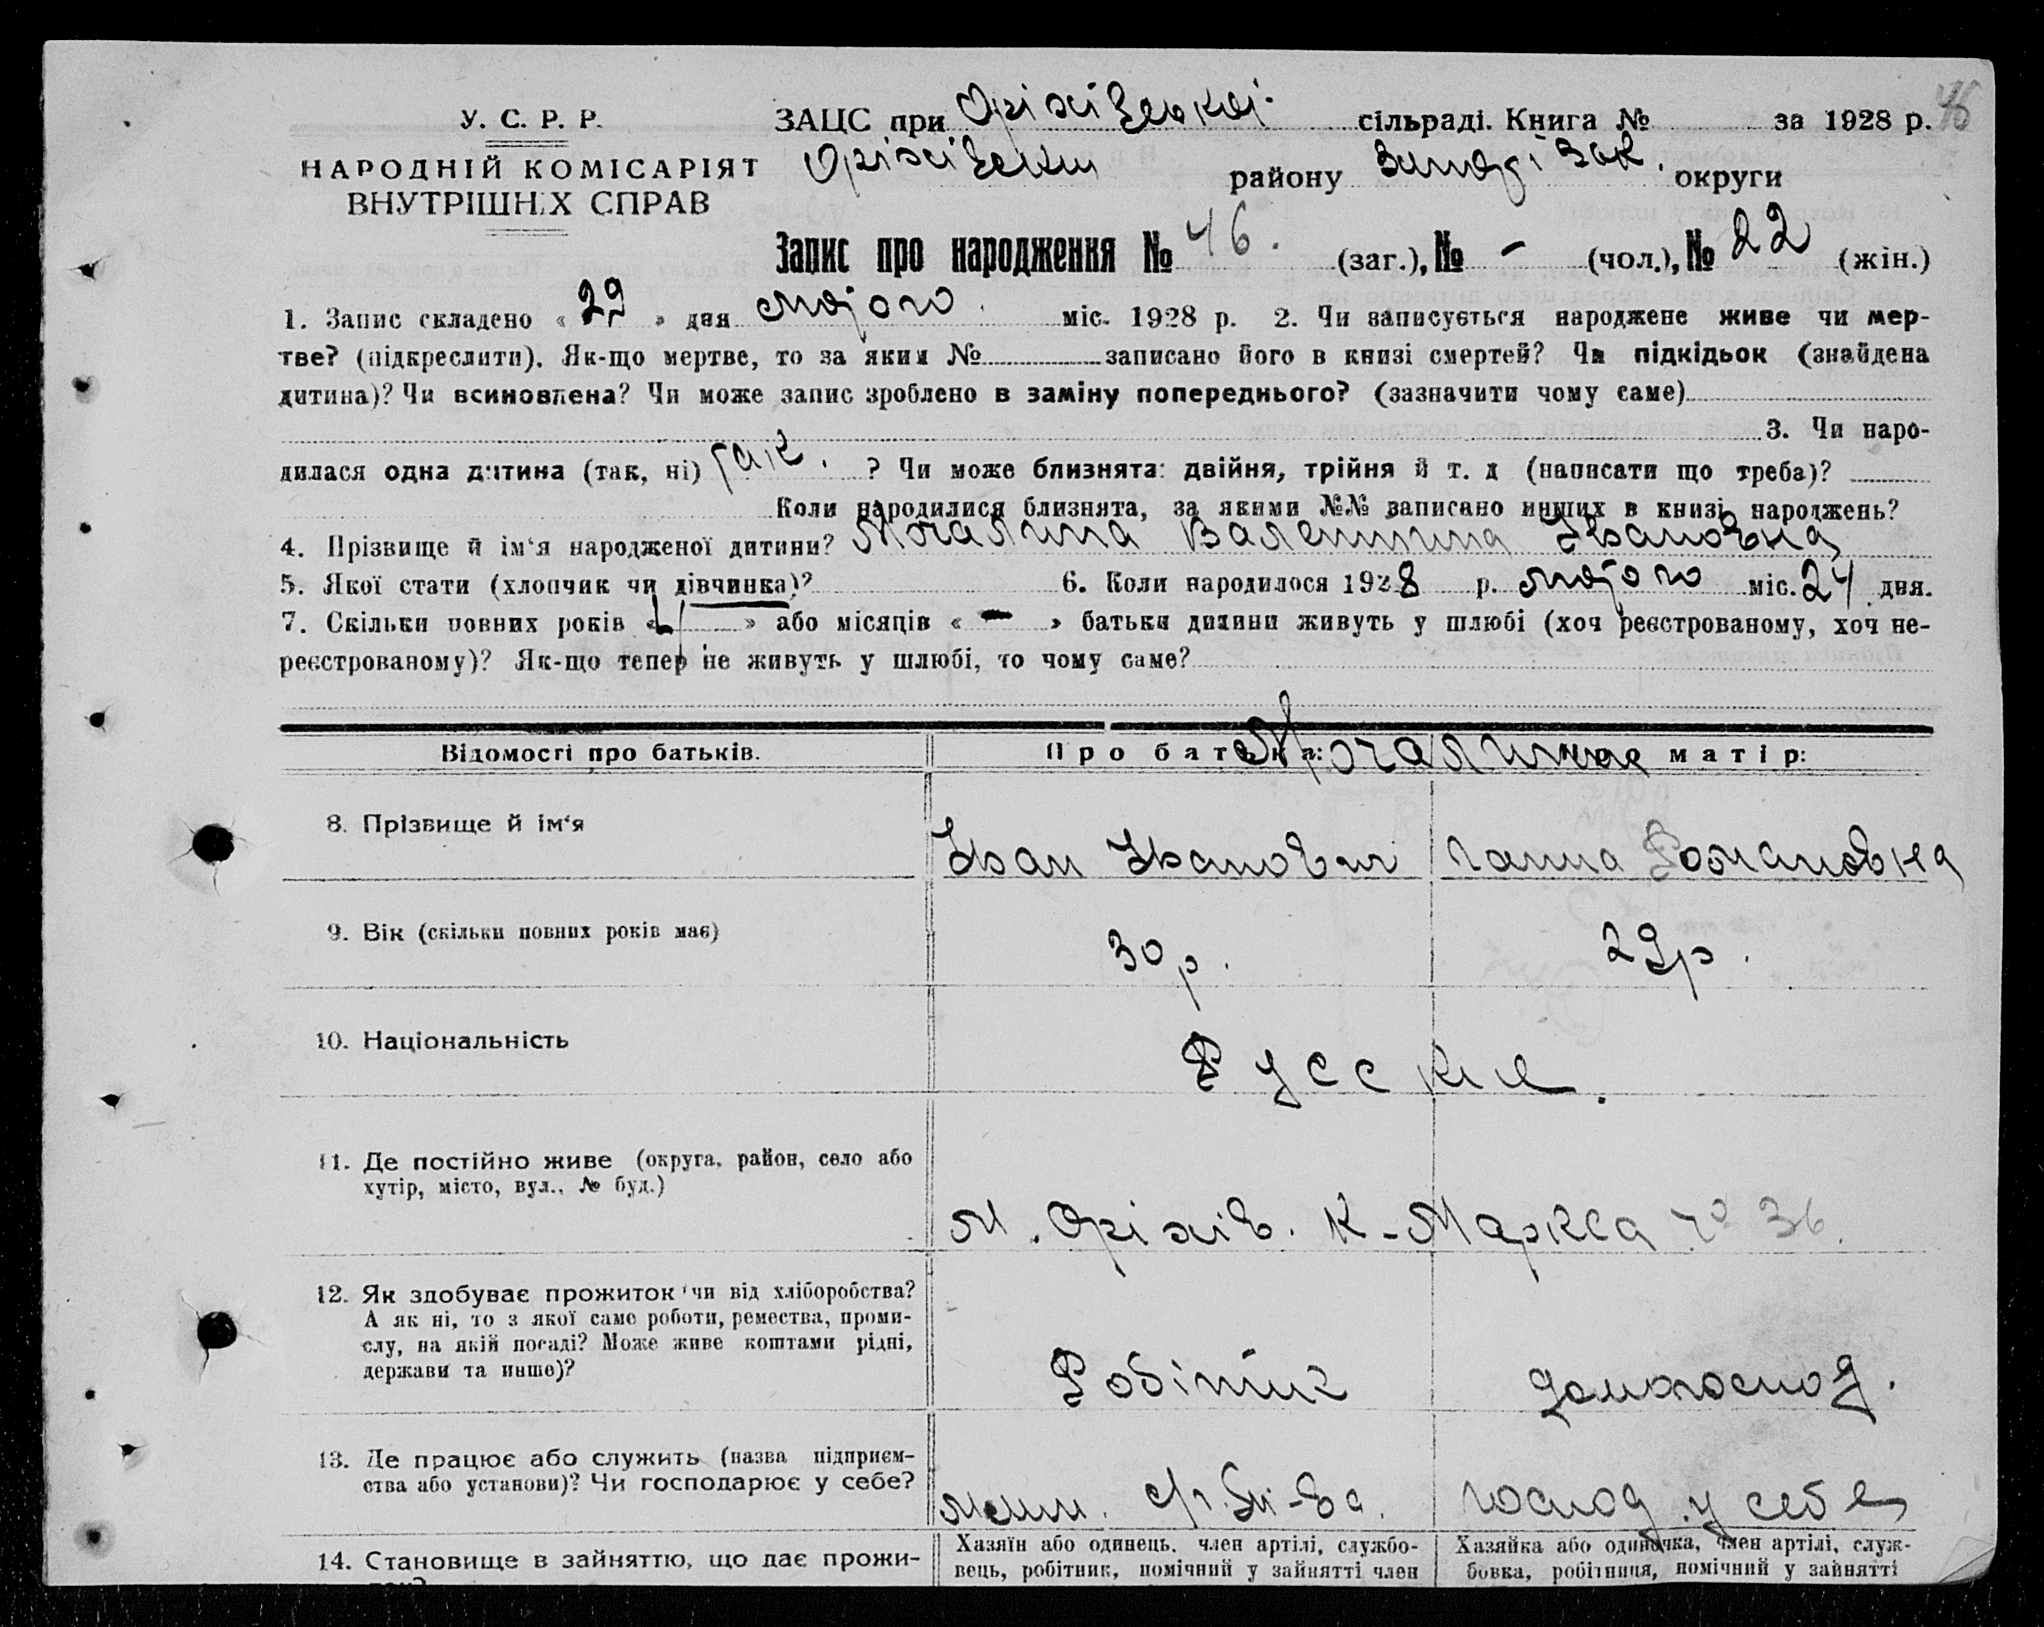 У. С. Р. Р. ЗАЦС при Оріхівській сільраді. Книга № за 1928 р. 46
НАРОДНІЙ КОМІСАРІЯТ Оріхівськ району Запорізьк. округи
ВНУТРІШНІХ СПРАВ
Запис про народження № 46. (заг.), № – (чол.), № 22 (жін.)
1. Запис складено « 29 » дня лютого міс. 1928 р. 2. Чи записується народжене живе чи мер-
тве? (підкреслити). Як-що мертве, то за яким № записано його в книзі смертей? Чи підкідьок (знайдена
дитина)? Чи всиновлена? Чи може запис зроблено в заміну попереднього? (зазначити чому саме)
3. Чи наро-
дилася одна дитина (так, ні) так. ? Чи може близнята: двійня, трійня й т. д (написати що треба)?
Коли народилися близнята, за якими №№ записано инших в книзі народжень?
4. Прізвище й ім'я народженої дитини? Мочалина Валентина Ивановна
5. Якої стати (хлопчик чи дівчинка)? 6. Коли народилося 1928 р. лютого міс. 24 дня.
7. Скільки повних років « 4 » або місяців « – » батьки дитини живуть у шлюбі (хоч реєстрованому, хоч не-
реєстрованому)? Як-що тепер не живуть у шлюбі, то чому саме?
Відомості про батьків. Про батька: Про матір:
Мочалины
8. Прізвище й ім'я Иван Иванович Ганна Романовна
9. Вік (скільки повних років має) 30 р. 29 р.
10. Національність Русские.
11. Де постійно живе (округа, район, село або
хутір, місто, вул., № буд.)
м. Оріхів. К-Маркса № 36.
12. Як здобуває прожиток чи від хліборобства?
А як ні, то з якої саме роботи, ремества, проми-
слу, на якій посаді? Може живе коштами рідні,
держави та инше)?
Робітник домогоспод.
13. Де працює або служить (назва підприєм-
ства або установи)? Чи господарює у себе?
господ. у себе
14. Становище в зайняттю, що дає прожи- Хазяїн або одинець, член артілі, службо- Хазяйка або одиначка, член артілі, служ-
вець, робітник, помічний у зайнятті член бовка, робітниця, помічний у зайнятті